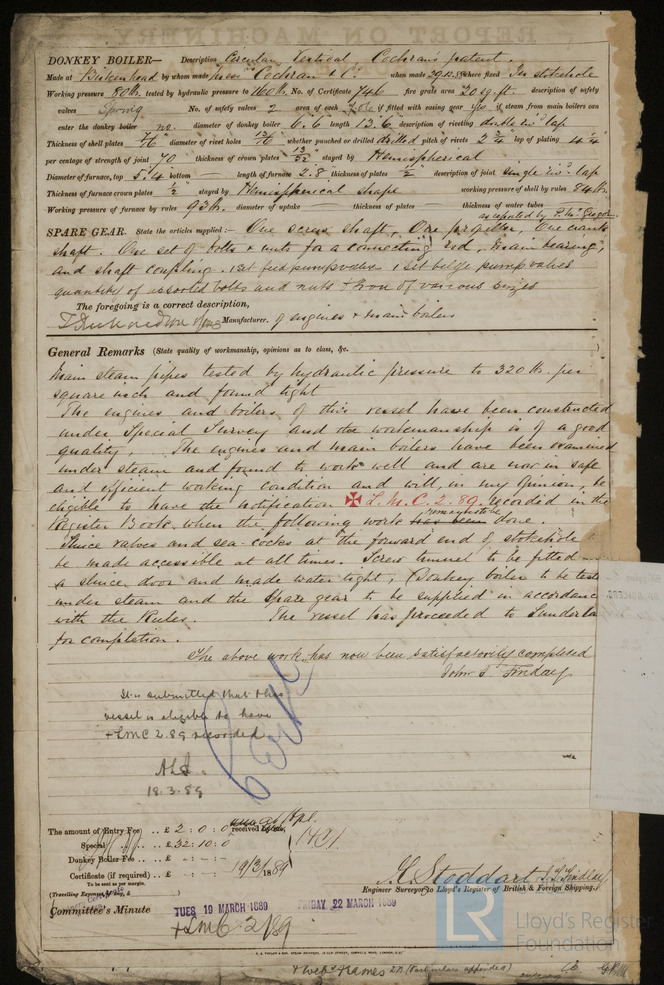 DONKEY BOILER— Description Circular Vertical Cochran's patent.
Made at Birkenhead by whom made Messrs Cochran & Co. when made 29.12.88 where fixed In stokehole
Working pressure 80 lbs. tested by hydraulic pressure to 160 lbs. No. of Certificate 746 fire grate area 20 sq. ft. description of safety
valves Spring No. of safety valves 2 area of each if fitted with easing gear yes if steam from main boilers can
enter the donkey boiler no. diameter of donkey boiler 6'.6 length 13'.6" description of riveting double riv? lap
Thickness of shell plates 7/16 diameter of rivet holes 13/16 whether punched or drilled drilled pitch of rivets 2 3/4 lap of plating 4 1/4
per centage of strength of joint 70 thickness of crown plates 13/32 stayed by Hemispherical
Diameter of furnace, top 5'.4 bottom — length of furnace 2.8 thickness of plates 1/2" description of joint single riv? lap
Thickness of furnace crown plates 1/2 stayed by Hemispherical shape working pressure of shell by rules 84 lbs.
Working pressure of furnace by rules 93 lbs. diameter of uptake — thickness of plates — thickness of water tubes
as reported by P. McGregor.
SPARE GEAR. State the articles supplied:— One screw shaft, One propeller, One crank
shaft. One set of bolts & nuts for a connecting rod, main bearing,
and shaft coupling. 1 set feed pump valves 1 set bilge pump valves
quantity of assorted bolts and nuts & iron of various sizes
The foregoing is a correct description,
T. Richardson & Sons Manufacturer. of engines & main boilers
General Remarks (State quality of workmanship, opinions as to class, &c.
Main steam pipes tested by hydraulic pressure to 320 lbs. per
square inch and found tight
The engines and boilers of this vessel have been constructed
under Special Survey and the workmanship is of a good
quality. The engines and main boilers have been examined
under steam and found to work well and are now in safe
and efficient working condition and will, in my opinion, be
eligible to have the notification ✠ L.M.C. 2.89. recorded in the
Register Book, when the following work has been done.
Sluice valves and sea-cocks at the forward end of stokehole
be made accessible at all times. Screw tunnel to be fitted
a sluice door and made water tight, Donkey boiler to be
under steam and the spare gear to be supplied in
with the Rules. The vessel has proceeded to
for completion.
The above work has now been satisfactorily completed
John S. Findlay
It is submitted that this
vessel is eligible to have
+ LMC 2.89 recorded
18.3.89
The amount of Entry Fee .. £ 2 : 0 : 0 received
Special .. £ 32 : 10 : 0
Donkey Boiler Fee .. £ - : - : -
Certificate (if required) .. £ - : - : - 19/3/1889
To be sent as per margin.
(Travelling Expenses, if any, £
H. Stoddart J. S. Findlay
Engineer Surveyor to Lloyd's Register of British & Foreign Shipping.
Committee's Minute
TUES 19 MARCH 1889 FRIDAY 22 MARCH 1889
+ LMC 2/89
LR
Lloyd's Register
Foundation
+ web frames (Particulars appended)